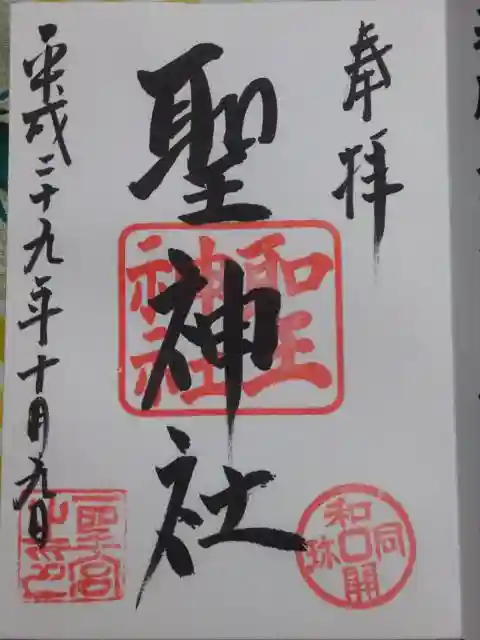 奉拝
聖神社
聖
神社
和同開珎
平成二十九年十月九日
聖宮